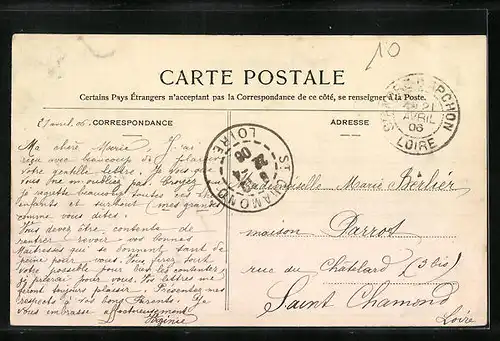 10
CARTE POSTALE
Certains Pays Étrangers n'acceptant pas la Correspondance de ce côté, se renseigner à la Poste.
21 avril 06 CORRESPONDANCE
Ma chère Marie. J'ai
reçu avec beaucoup de plaisir
votre gentille lettre. Je vois que
vous ne m'oubliez pas. Croyez
je regrette beaucoup toutes mes chères
enfants et surtout (mes grandes
comme vous dites.
Vous devez être contente de
rentrer revoir vos bonnes
Maîtresses qui se donnent tant de
peine pour vous. Vous ferez tout
votre possible pour bien les contenter,
je prierai pour vous. Vos lettres me
feront toujours plaisir. Présentez mes
respects à vos bons Parents. Je
vous embrasse affectueusement
Virginie
ADRESSE
Mademoiselle Marie Berlier
maison Parrot
rue du Châtelard (3 bis)
Saint Chamond
Loire
AVRIL
06
LOIRE
ST CHAMOND
LOIRE
06